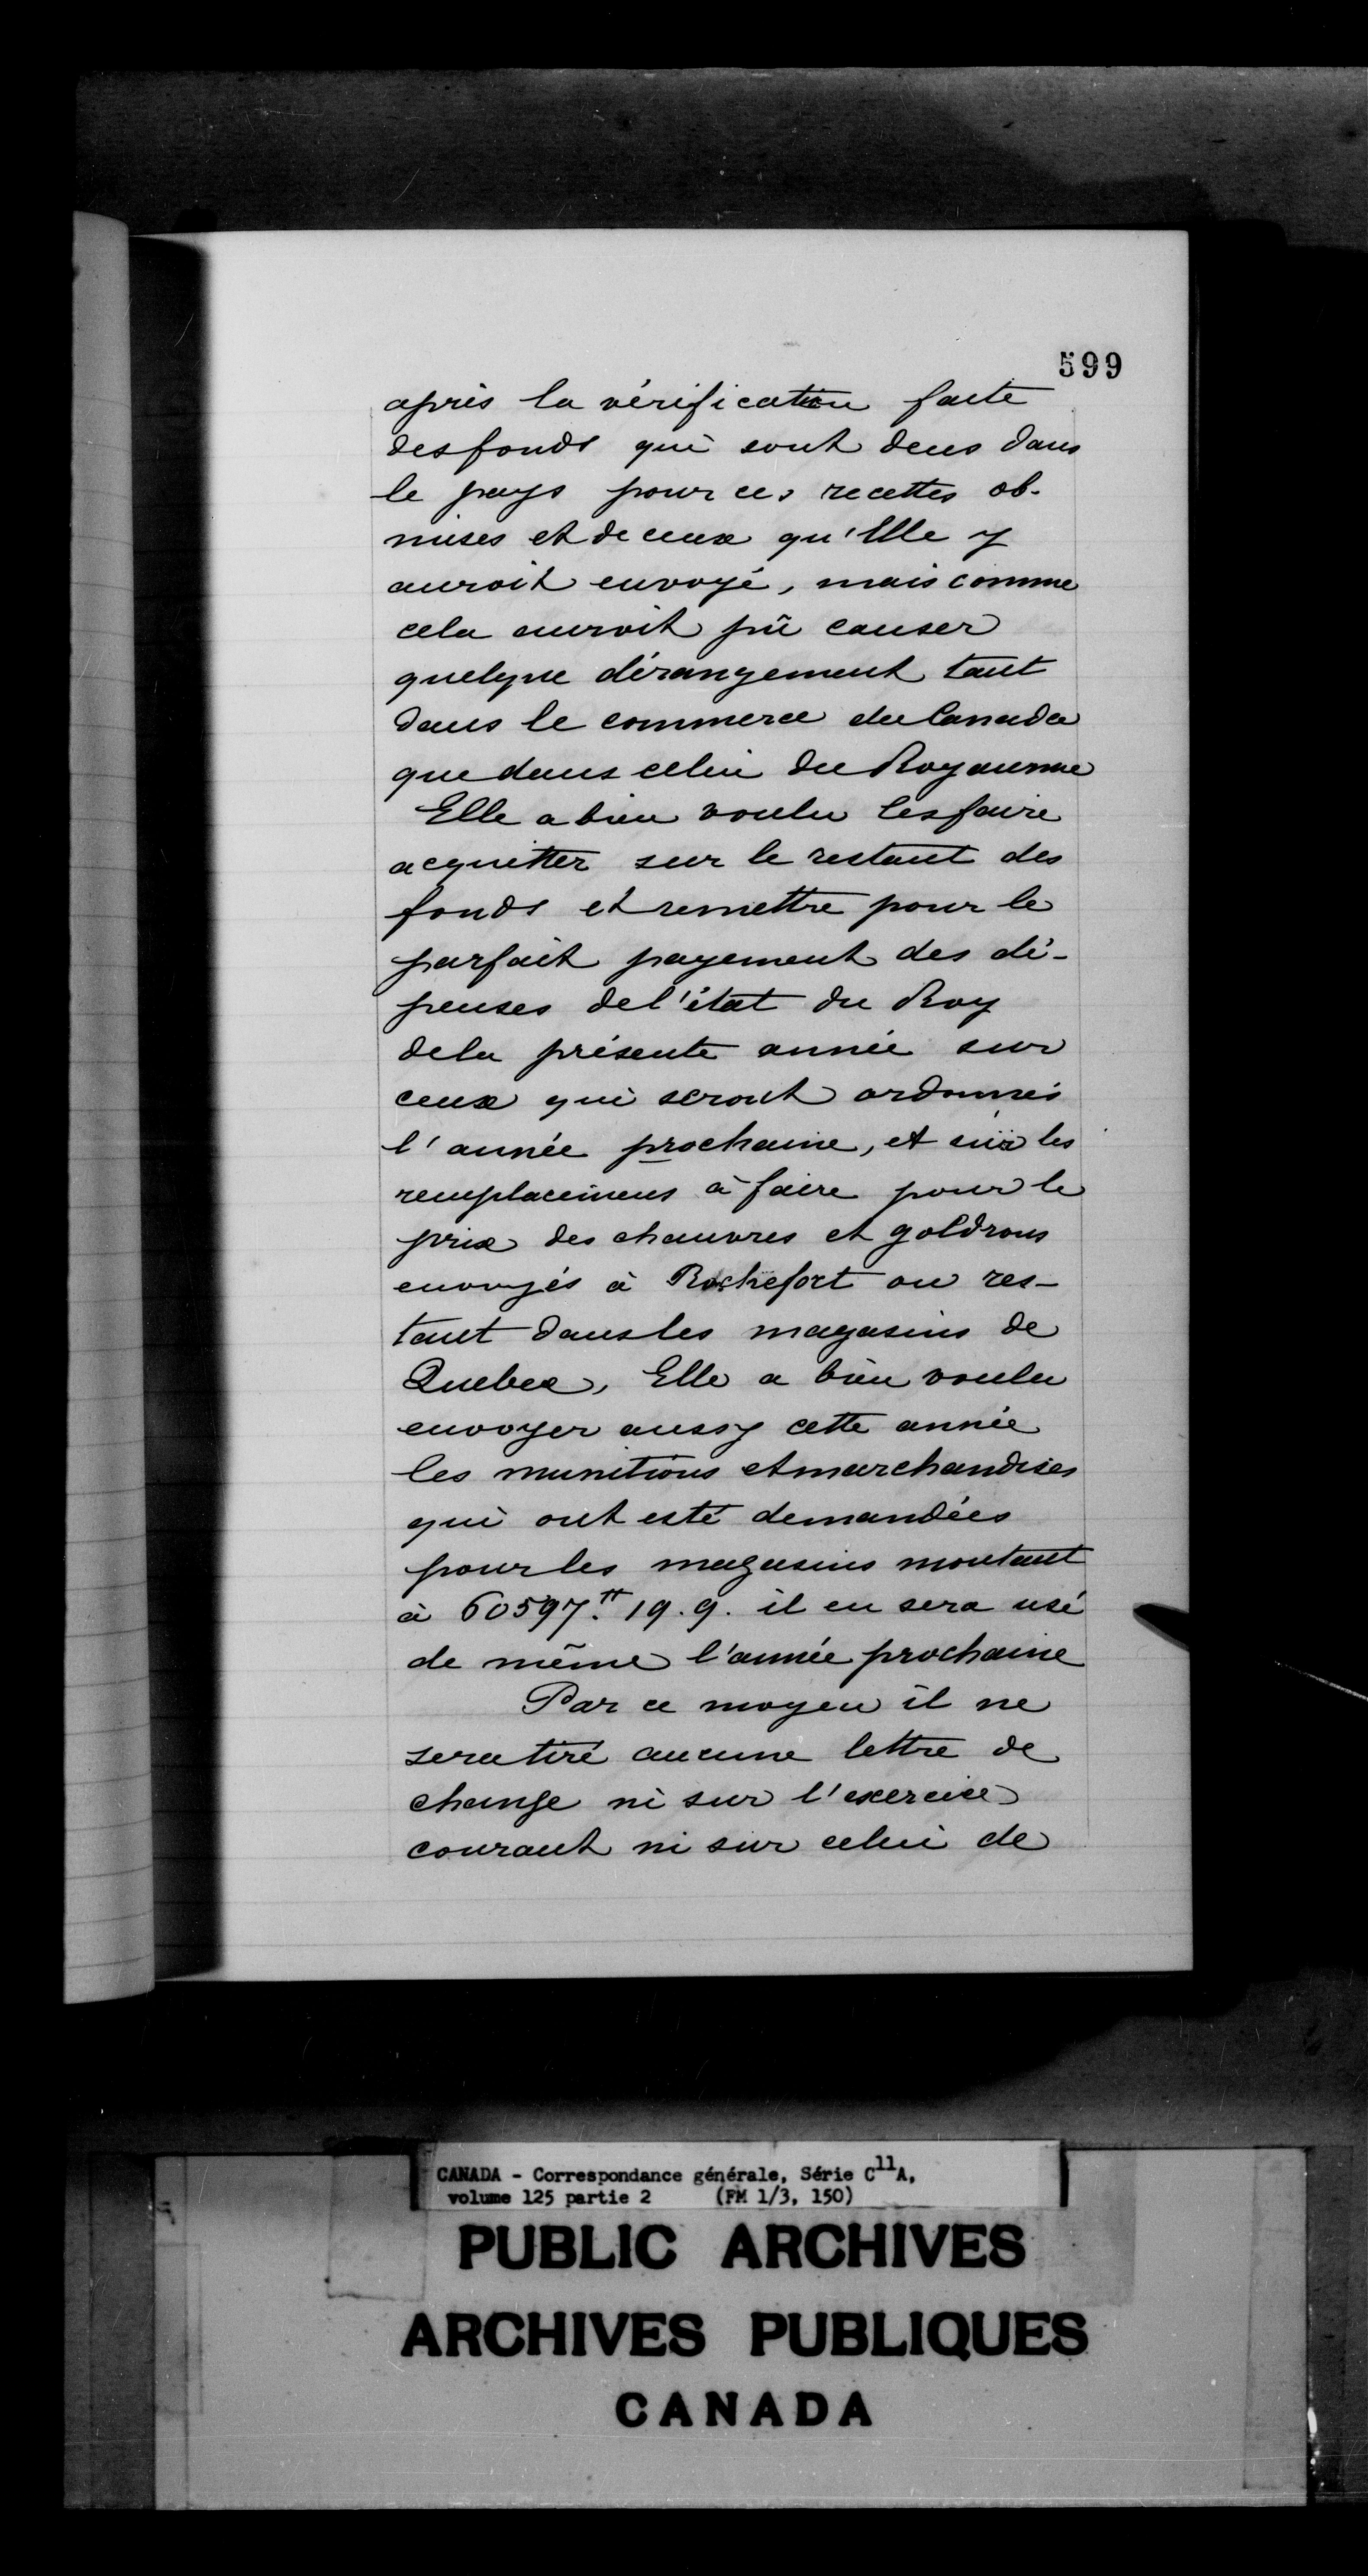 599
après la vérification faite
des fonds qui sont deus dans
le pays pour ces recettes ob-
mises et de ceux qu'Elle y
auroit envoyé, mais comme
cela auroit pû causer
quelque dérangement tant
dans le commerce du Canada
que dans celui du Royaume
Elle a bien voulu les faire
acquitter sur le restant des
fonds et remettre pour le
parfait payement des dé-
penses de l'état du Roy
de la présente année sur
ceux qui seront ordonnés
l'année prochaine, et sur les
remplacemens à faire pour le
prix des chanvres et goldrons
envoyés à Rochefort ou res-
tant dans les magasins de
Quebec, Elle a bien voulu
envoyer aussy cette année
les munitions et marchandises
qui ont esté demandées
pour les magasins montant
à 60597.tt 19. 9. il en sera usé
de même l'année prochaine
Par ce moyen il ne
sera tiré aucune lettre de
change ni sur l'exercice
courant ni sur celui de
CANADA - Correspondance générale, Série C11A,
volume 125 partie 2 (FM 1/3, 150)
PUBLIC ARCHIVES
ARCHIVES PUBLIQUES
CANADA